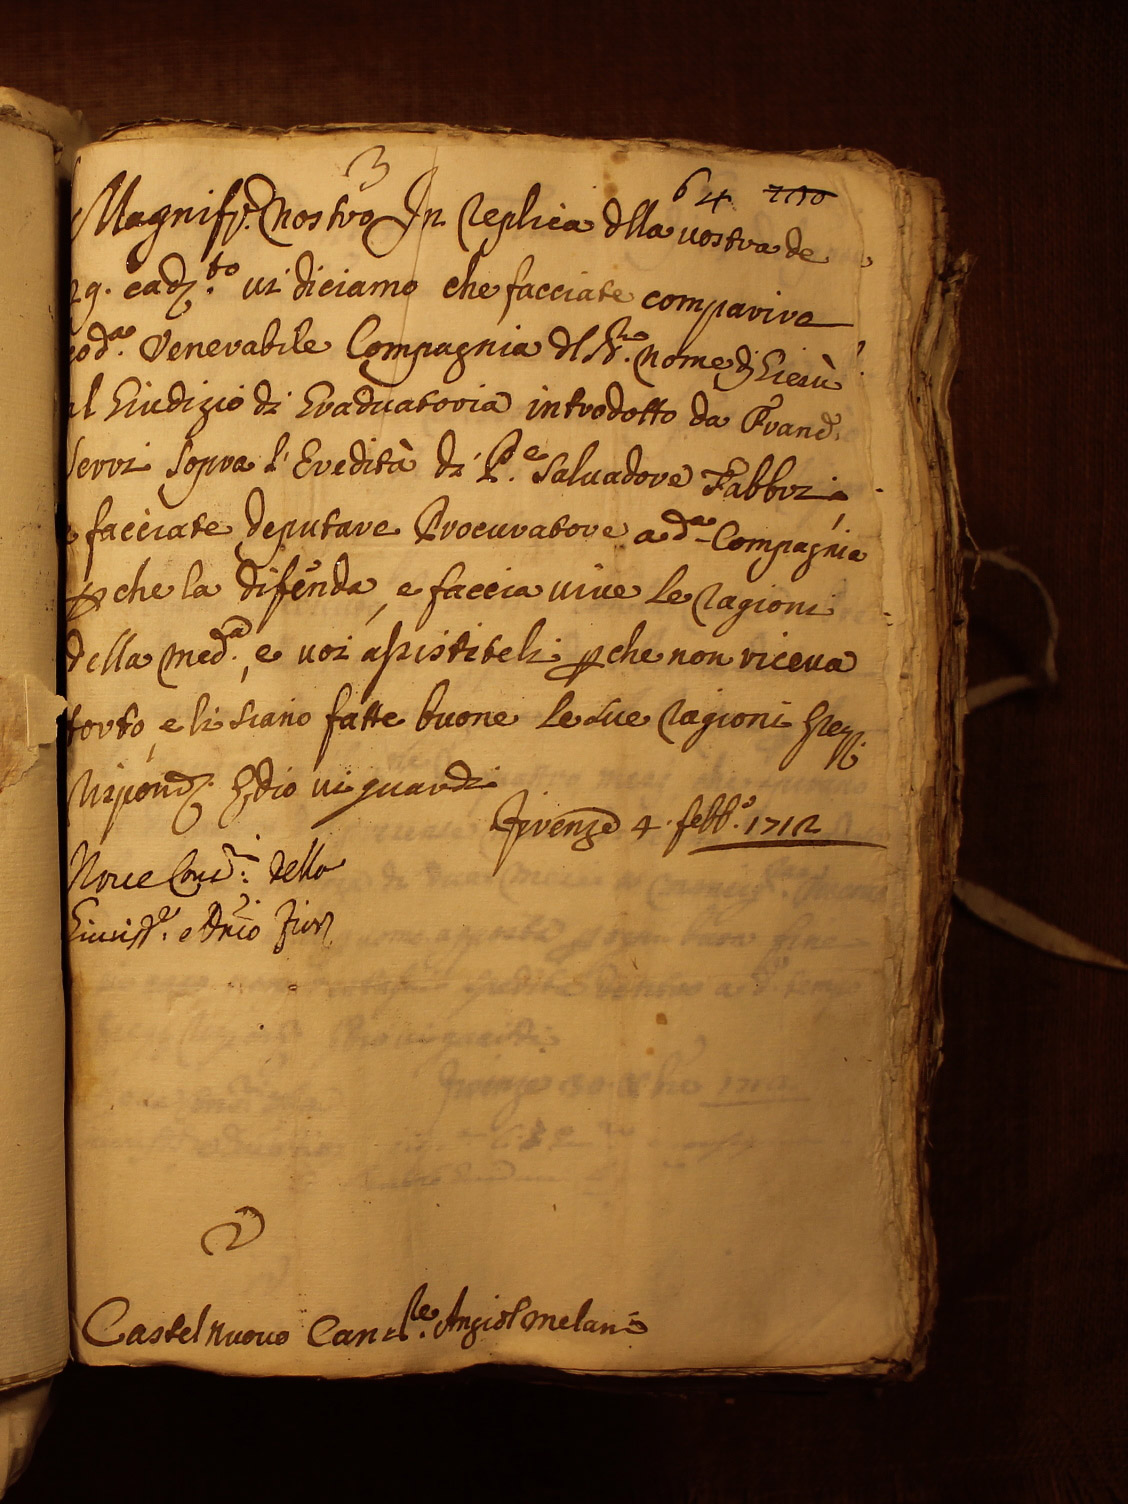 3
64 230
Magnif.co nostro In replica d lla vostra de
29. cad.to vi diciamo che facciate comparire
cod.a Venerabile Compagnia del S.mo nome di Giesù
al Giudizio di Graduatoria introdotto da Franc.
Serri sopra l'Eredità di P.e Salvadore Fabbri
e facciate deputare Procuratore a d.a Compagnia
p che la difenda, e faccia vive le ragioni
della med.a, e voi assisteteli p che non riceva
torto, e li siano fatte buone le sue ragioni
Rispond. E Dio vi guardi
Firenze 4. febb.o 1712
Nove Con.ri dello
Giurisd.e e Dnio Fior
Castelnuovo Canc.re Angiol Melani